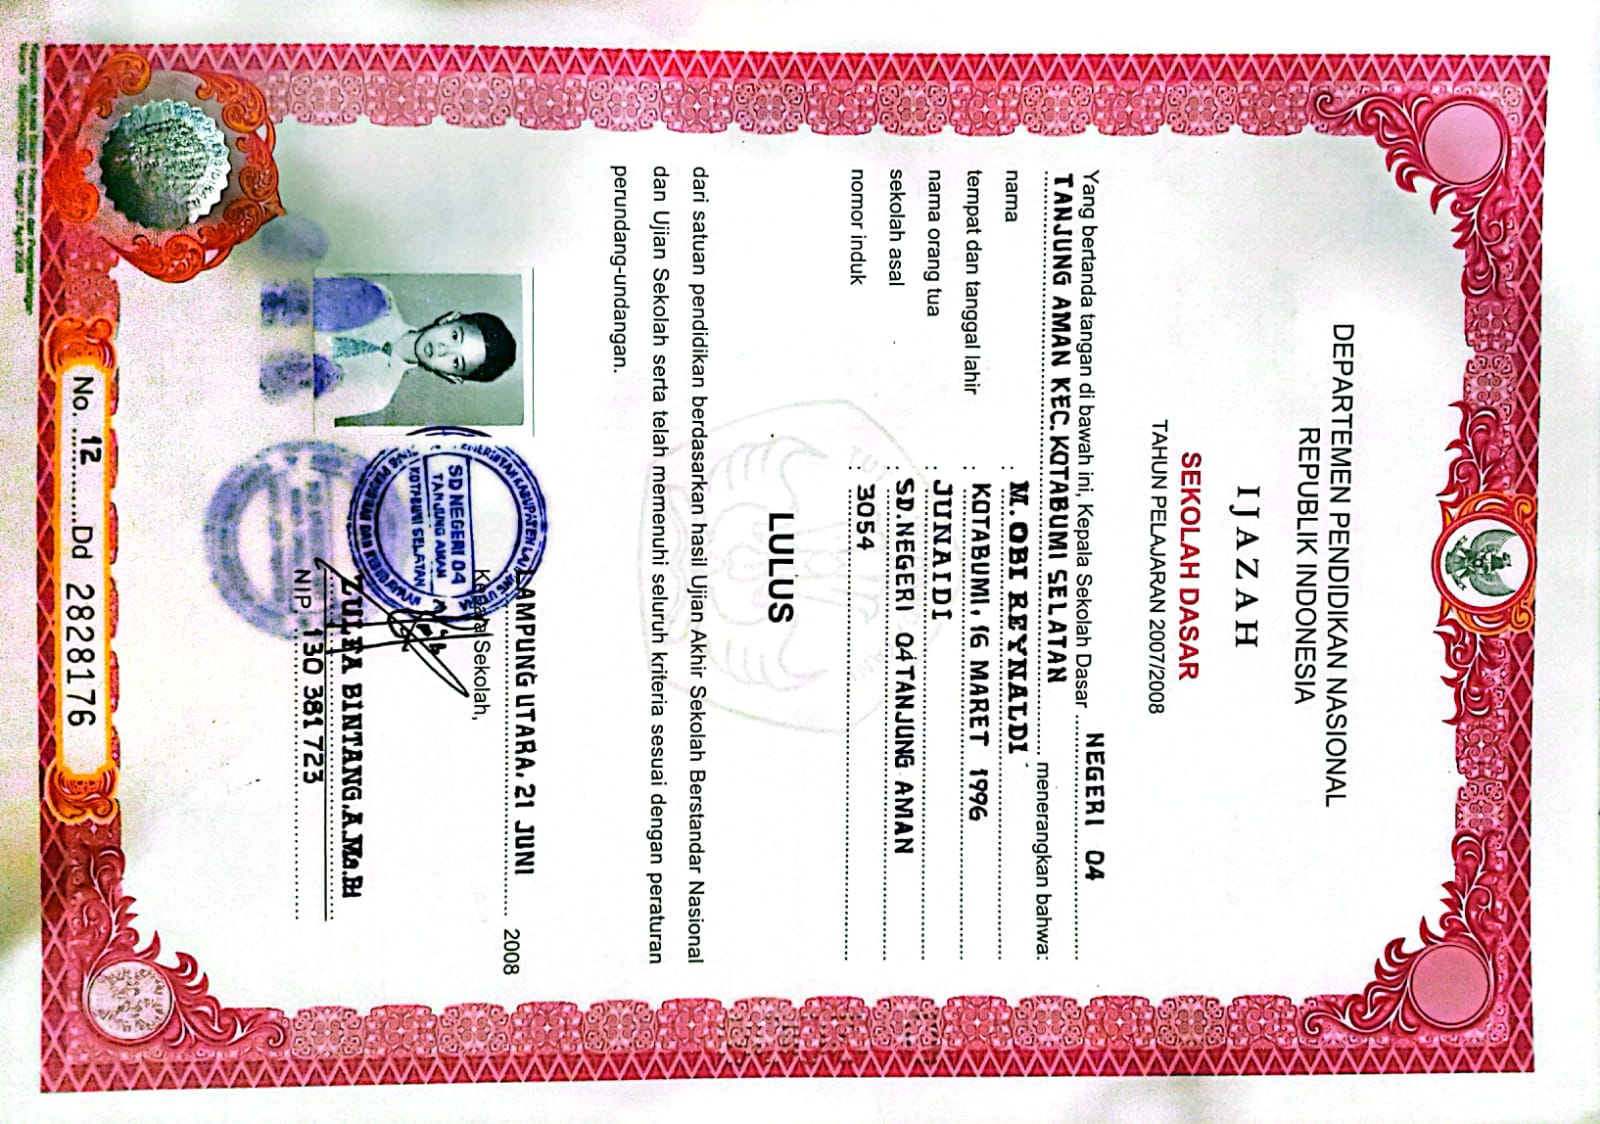 DEPARTEMEN PENDIDIKAN NASIONAL
REPUBLIK INDONESIA
IJAZAH
SEKOLAH DASAR
TAHUN PELAJARAN 2007/2008
Yang bertanda tangan di bawah ini, Kepala Sekolah Dasar NEGERI 04
TANJUNG AMAN KEC. KOTABUMI SELATAN menerangkan bahwa:
nama : M. OBI REYNALDI
tempat dan tanggal lahir : KOTABUMI, 16 MARET 1996
nama orang tua : JUNAIDI
sekolah asal : SD. NEGERI 04 TANJUNG AMAN
nomor induk : 3054
LULUS
dari satuan pendidikan berdasarkan hasil Ujian Akhir Sekolah Berstandar Nasional
dan Ujian Sekolah serta telah memenuhi seluruh kriteria sesuai dengan peraturan
perundang-undangan.
LAMPUNG UTARA, 21 JUNI 2008
Kepala Sekolah,
SD NEGERI 04
TANJUNG AMAN
KOTABUMI SELATAN
ZULFA BINTANG.A.Ma.Pd
NIP. 130 381 723
No. 12 Dd 2828176